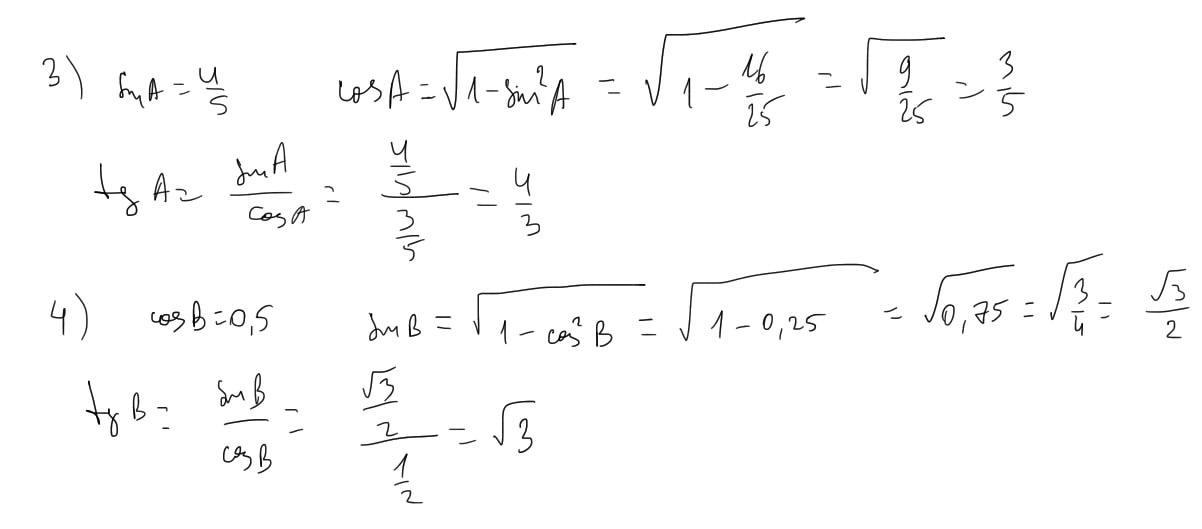 3) sin A = 4/5 cos A = √(1 - sin²A) = √(1 - 16/25) = √(9/25) = 3/5
tg A = sin A / cos A = (4/5) / (3/5) = 4/3
4) cos B = 0,5 sin B = √(1 - cos²B) = √(1 - 0,25) = √(0,75) = √(3/4) = √3/2
tg B = sin B / cos B = (√3/2) / (1/2) = √3